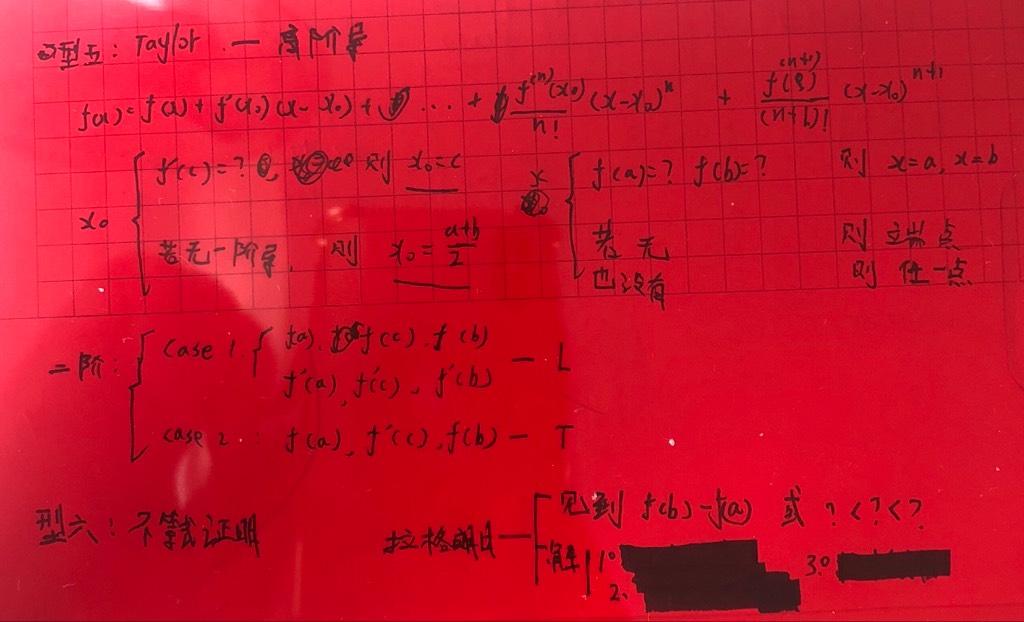 型五：Taylor — 高阶导
f(x)=f(x₀)+f'(x₀)(x-x₀)+ ... + f⁽ⁿ⁾(x₀)/n! (x-x₀)ⁿ + f⁽ⁿ⁺¹⁾(ξ)/(n+1)! (x-x₀)ⁿ⁺¹
x₀ { f'(c)=? 则 x₀=c
若无一阶导, 则 x₀=a+b/2
x { f(a)=? f(b)=? 则 x=a, x=b
若无 则 立端点
也没有 则 任一点
二阶: { case 1: { f(a), f(c), f(b)
f'(a), f'(c), f'(b) — L
case 2: f(a), f'(c), f(b) — T
型六：不等式证明
拉格朗日 — 见到 f(b)-f(a) 或 ?<?<?
解 1°
2.
3°